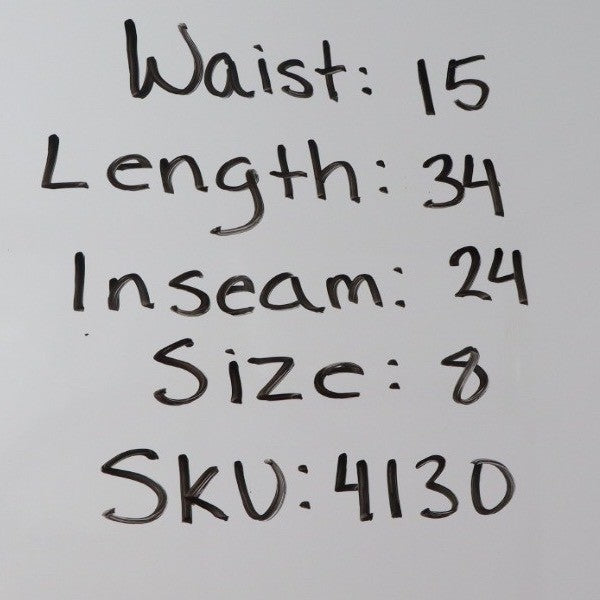 Waist: 15
Length: 34
Inseam: 24
Size: 8
SKU: 4130